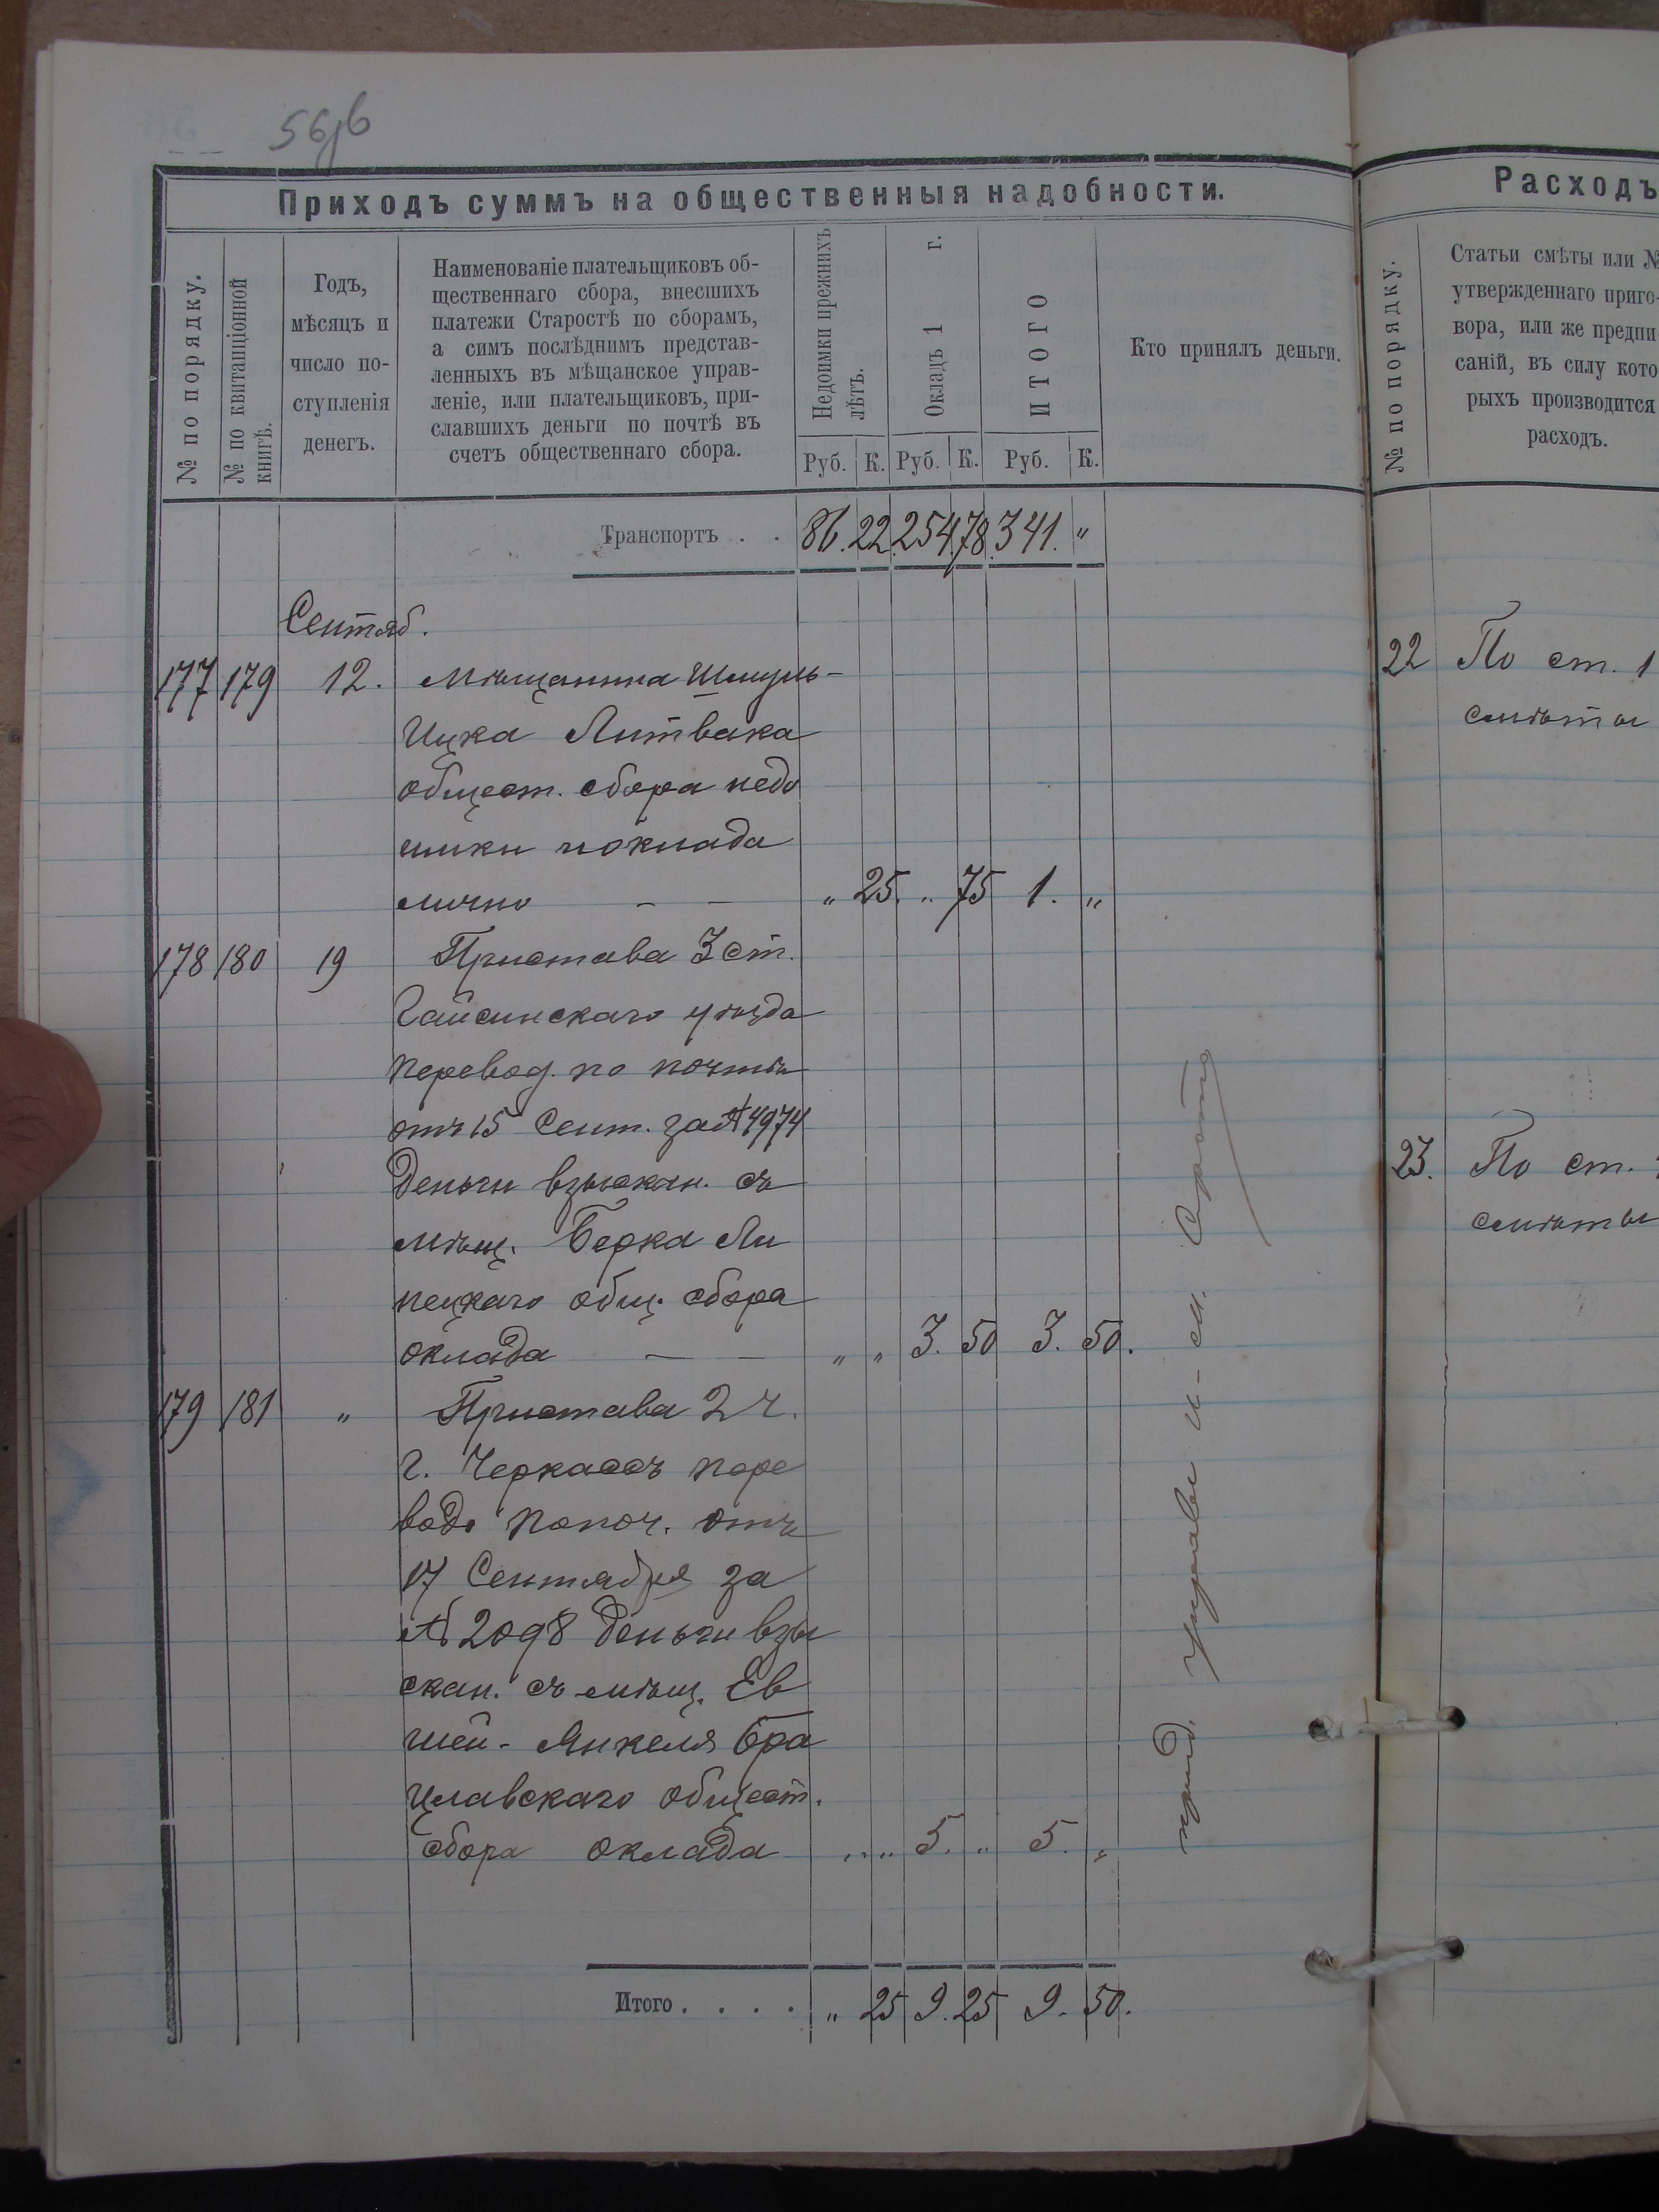 56об
Приходъ суммъ на общественныя надобности.
№ по порядку.
№ по квитанціонной
книгѣ.
Годъ,
мѣсяцъ и
число по-
ступленія
денегъ.
Наименованіе плательщиковъ об-
щественнаго сбора, внесшихъ
платежи Старостѣ по сборамъ,
а симъ послѣднимъ представ-
ленныхъ въ мѣщанское управ-
леніе, или плательщиковъ, при-
славшихъ деньги по почтѣ въ
счетъ общественнаго сбора.
Недоимки прежнихъ
лѣтъ.
Окладъ 1 г.
ИТОГО
Руб. К. Руб. К. Руб. К.
Кто принялъ деньги.
Транспортъ . . 86. 22. 254. 78. 341. "
Сентяб.
177 179 12. Мѣщанина Шмуль-
Ицка Литвака
общест. сбора недо
имки и оклада
лично — — " 25. " 75 1. "
178 180 19 Пристава 3 ст.
Гайсинскаго уѣзда
перевод. по почтѣ
отъ 15 Сент. за № 4974
деньги взыскан. съ
мѣщ. Берка Ли
пецкаго общ. сбора
оклада — — " " 3. 50 3. 50.
179 181 " Пристава 2 ч.
г. Черкассъ пере
вод. по поч. отъ
17 Сентября за
№ 2098 деньги взы
скан. съ мѣщ. Ев
шей-Янкеля Бра
цлавскаго общест.
сбора оклада " " 5. " 5. "
Итого . . . . " 25 9. 25 9. 50.
Управы
Расходъ
№ по порядку.
Статьи смѣты или №
утвержденнаго приго-
вора, или же предпи
саній, въ силу кото
рыхъ производится
расходъ.
22 По ст. 1
смѣты
23. По ст.
смѣты